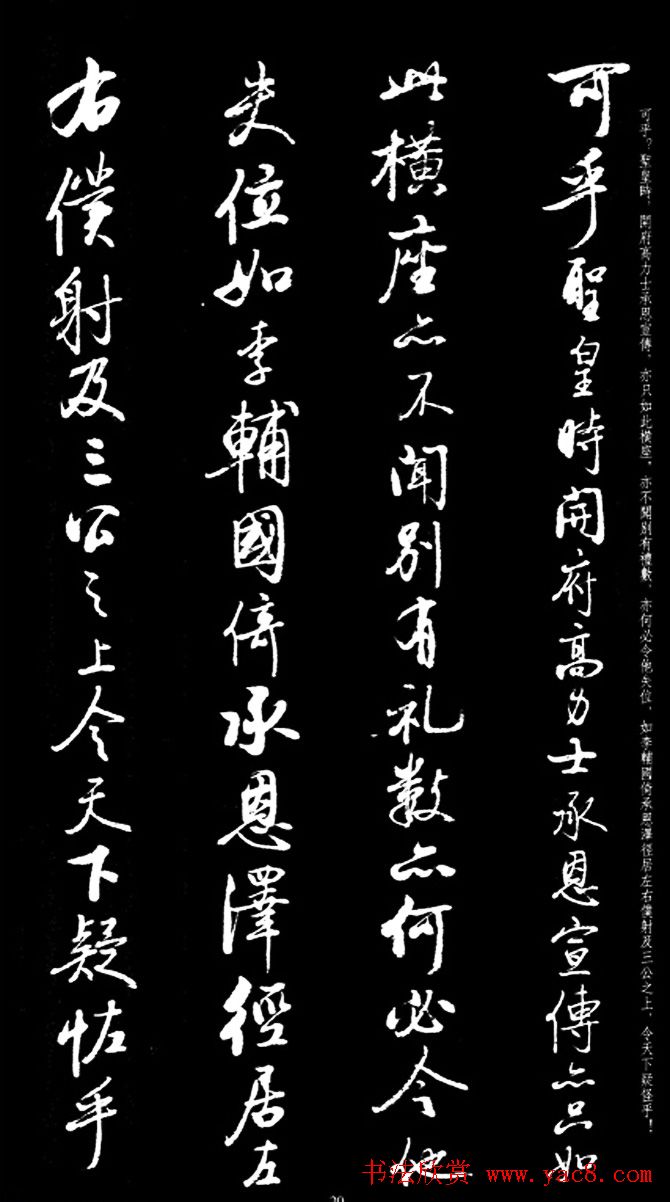 可乎？聖皇時，開府高力士承恩宣傳，亦只如此橫座，亦不聞別有禮數，亦何必令他失位，如李輔國倚承恩澤徑居左右僕射及三公之上，令天下疑怪乎！
可乎聖皇時開府高力士承恩宣傳亦只如
此橫座亦不聞別有礼數亦何必令他
失位如李輔國倚承恩澤徑居左
右僕射及三公之上令天下疑恠乎
书法欣赏 www.yac8.com
20